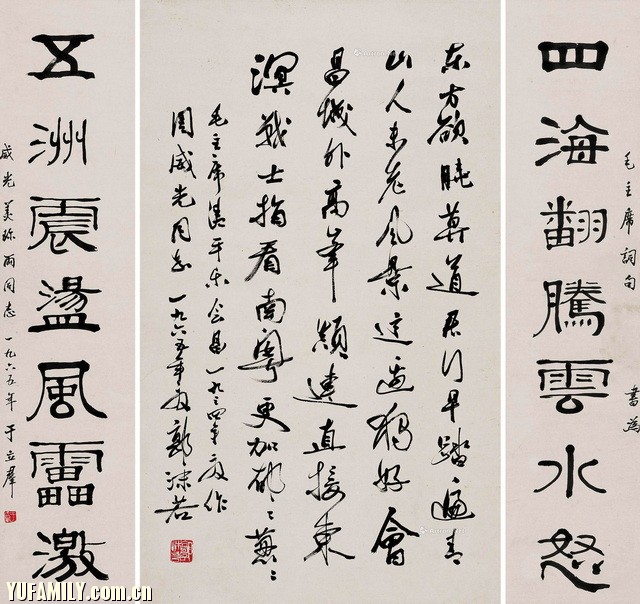 毛主席詞句 書為
四海翻騰雲水怒
东方欲晓莫道君行早踏遍青
山人未老风景这边独好會
昌城外高峯颠连直接東
溟战士指看南粵更加郁〻蔥〻
毛主席清平乐会昌一九三四年夏作
周威光同志 一九六五年 郭沫若
五洲震盪風靁激
威光美珍兩同志 一九六五年 于立羣
YUFAMILY.com.cn